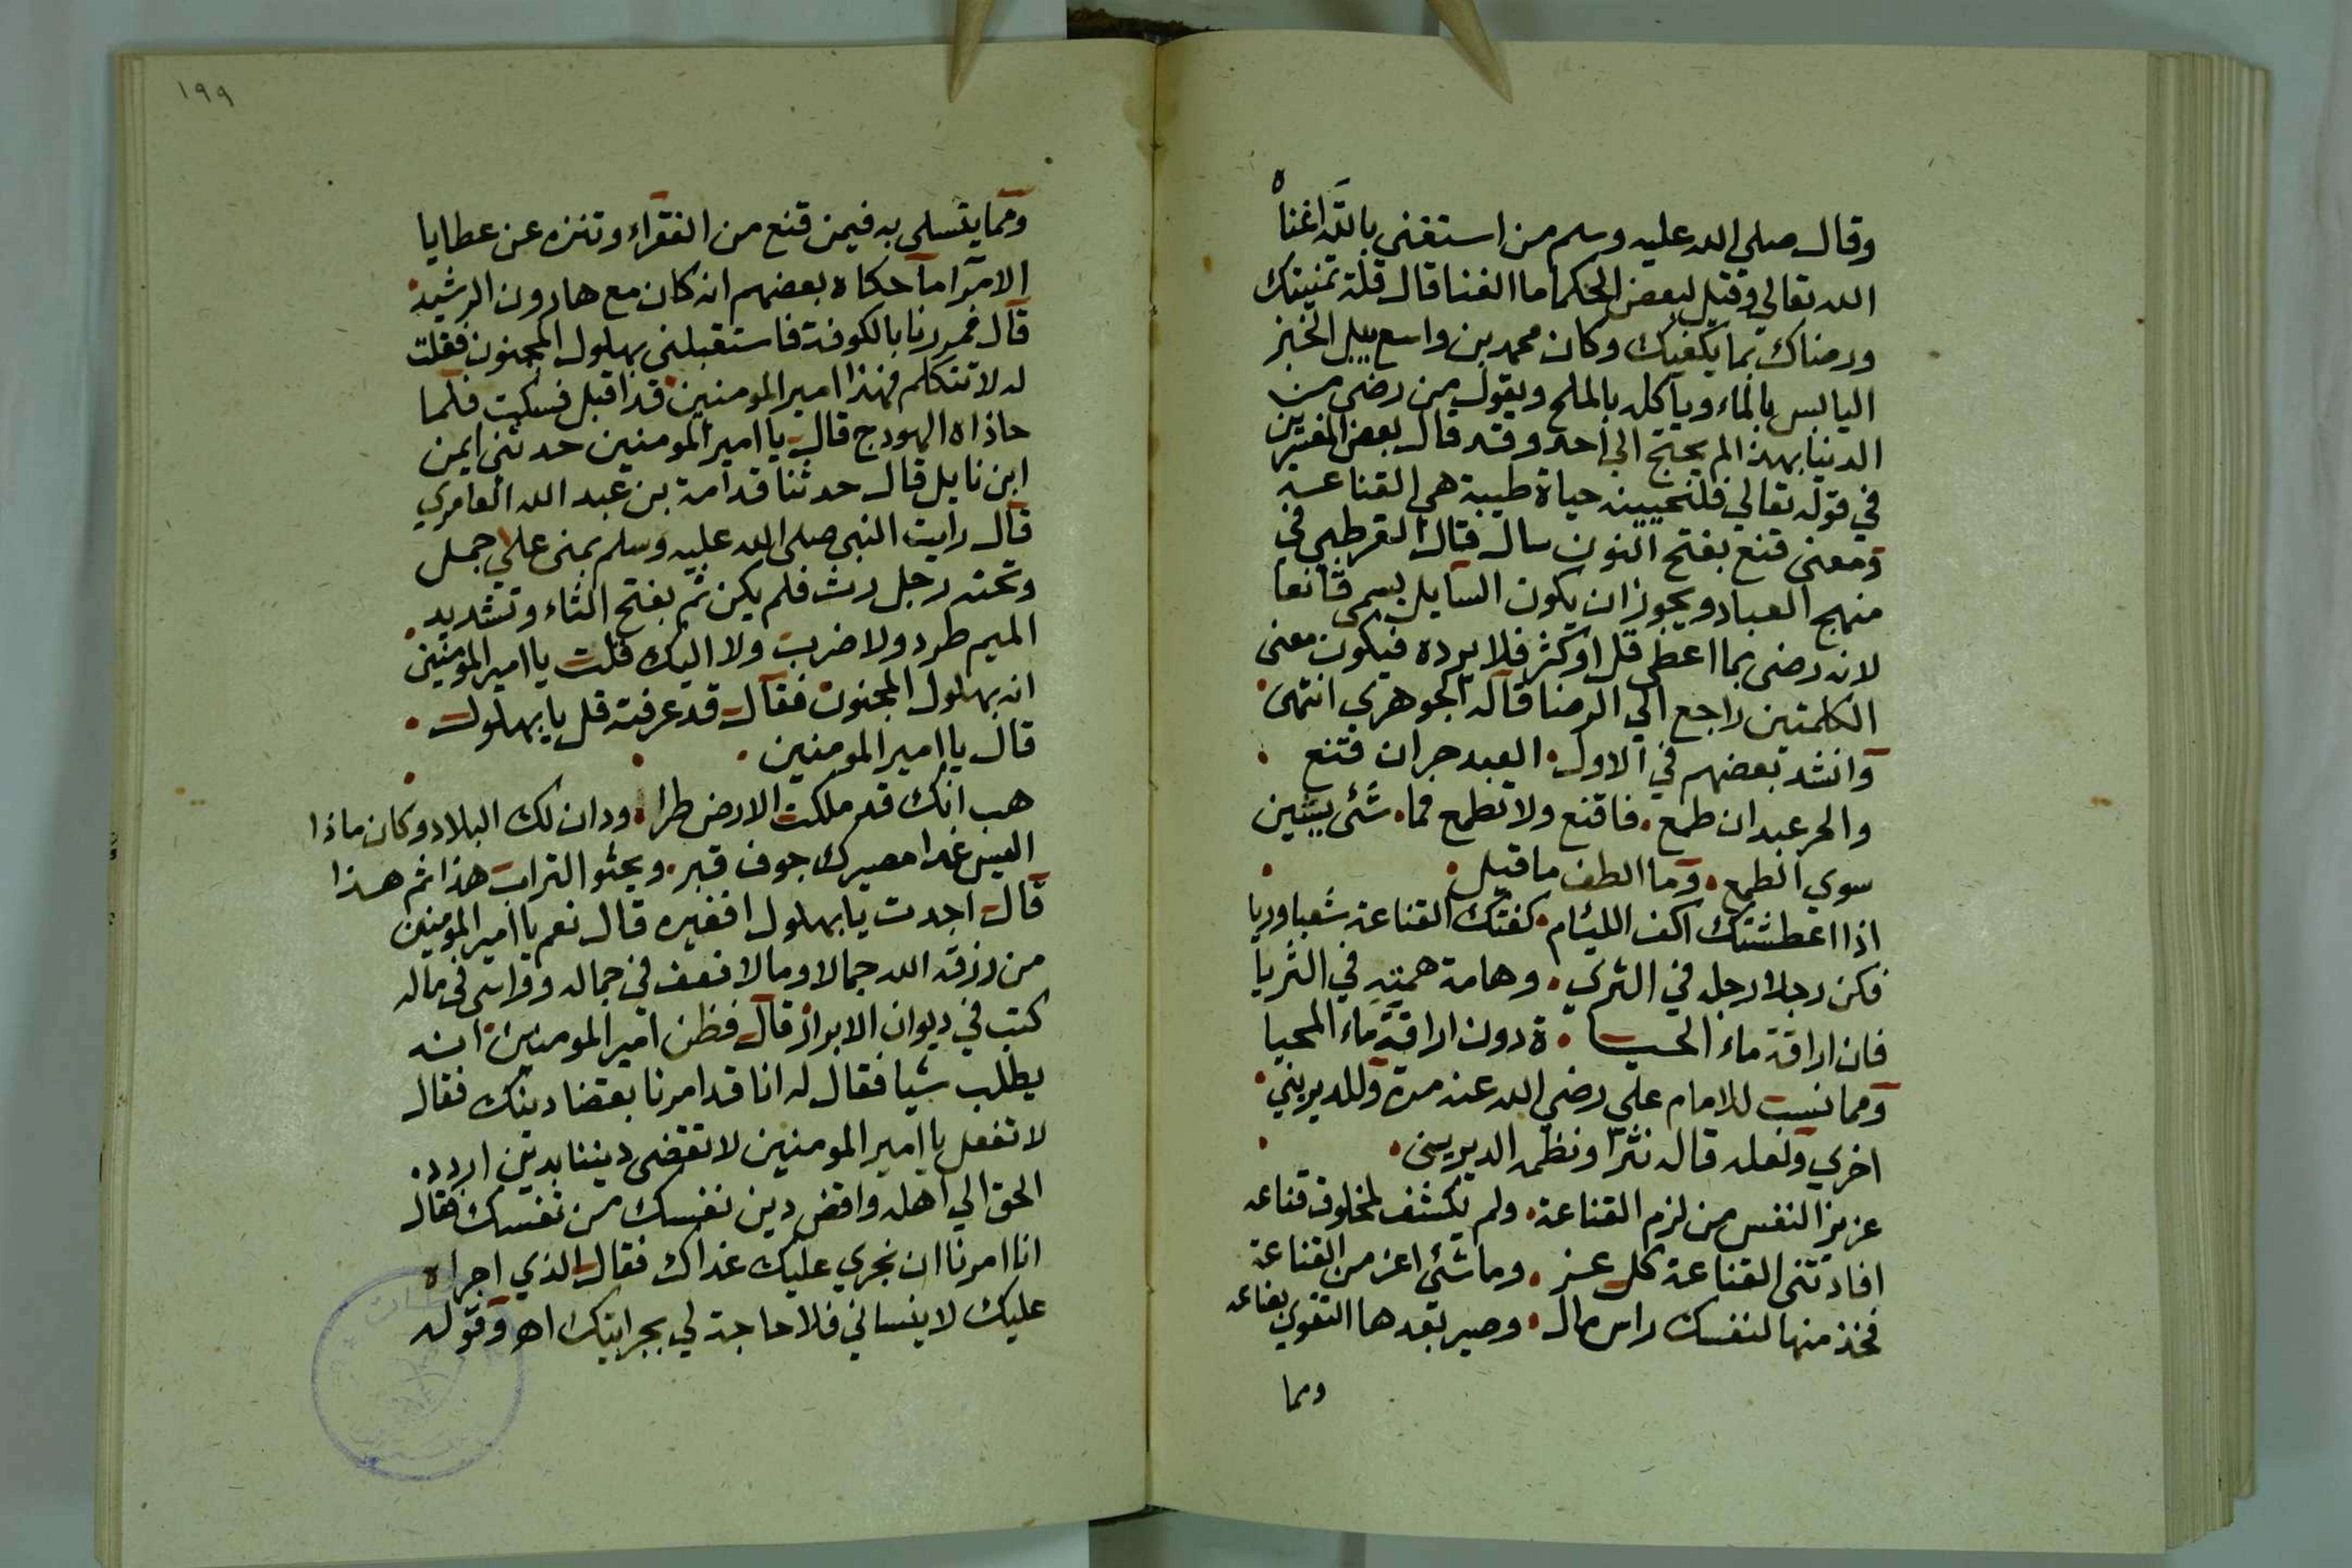 وقال صلى الله عليه وسلم من استغنى بالله اغناه
الله تعالي وقيل لبعض الحكما ما الغنا قال قلة تمنيتك
ورضاك بما يكفيك وكان محمد بن واسع يبل الخبز
اليابس بالماء وياكله بالملح ويقول من رضى من
الدنيا بهذا لم يحتج الي احد وقد قال بعض المفسرين
في قوله تعالي فلنحيينه حياة طيبة هي القناعة
ومعنى قنع بفتح النون سال قال القرطبي في
منهج العباد ويجوز ان يكون السايل يسمى قانعا
لانه رضى بما اعطى قل او كثر فلا يرده فيكون معنى
الكلمتين راجع الي الرضا قاله الجوهري انتهى
وانشد بعضهم في الاول العبد حر ان قنع
والحر عبد ان طمع فاقنع ولا تطمع فما شئ يشين
سوي الطمع وما الطف ما قيل
اذا اعطشتك اكف اللئام كفتك القناعة شعبا وريا
فكن رجلا رجله في الثري وهامة همته في الثريا
فان اراقة ماء الحيا ة دون اراقة ماء المحيا
ومما نسبت للامام علي رضي الله عنه مرة وللديريني
اخري ولعله قاله نثرا ونظمه الديريني
عزيز النفس من لزم القناعة ولم تكشف لمخلوق قناعه
افادتنى القناعة كل عز وما شئ اعز من القناعة
فخذ منها لنفسك راس مال وصير بعدها التقوي بضاعه
ومما
١٩٩
ومما يتسلى به فيمن قنع من الفقراء وتنزه عن عطايا
الامرا ما حكاه بعضهم انه كان مع هارون الرشيد
قال فمررنا بالكوفة فاستقبلنى بهلول المجنون فقلت
له لا تتكلم فهذا امير المومنين قد اقبل فسكت فلما
حاذاه الهودج قال يا امير المومنين حدثنى ايمن
ابن نايل قال حدثنا قدامة بن عبد الله العامري
قال رايت النبى صلى الله عليه وسلم بمنى علي جمل
وتحته رجل رث فلم يكن ثم بفتح الثاء وتشديد
الميم طرد ولا ضرب ولا اليك قلت يا امير المومنين
انه بهلول المجنون فقال قد عرفته قل يا بهلول
قال يا امير المومنين
هب انك قد ملكت الارض طرا ودان لك البلاد وكان ماذا
اليس غدا مصيرك جوف قبر ويحثو التراب هذا ثم هذا
قال اجدت يا بهلول افغيره قال نعم يا امير المومنين
من رزقه الله جمالا ومالا فعف في جماله وواسى في ماله
كتب في ديوان الابرار قال فظن امير المومنين انه
يطلب شيا فقال له انا قد امرنا بقضا دينك فقال
لا تفعل يا امير المومنين لا تقضى ديننا بدين اردد
الحق الي اهله واقض دين نفسك من نفسك فقال
انا امرنا ان نجري عليك غداك فقال الذي اجراه
عليك لا ينساني فلا حاجة لي بجرايتك اهـ وقوله